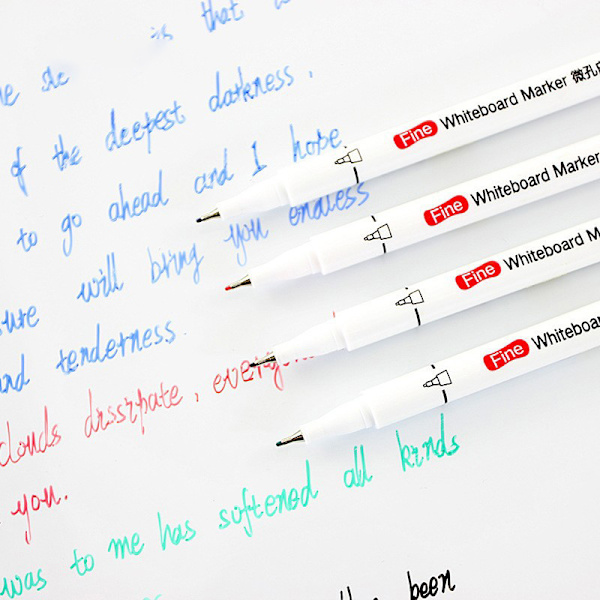 is that
of the deepest darkness.
to go ahead and I hope
will bring you endless
and tenderness.
clouds dissipate, every
you.
was to me has softened all kinds
been
Fine Whiteboard Marker 微孔
Fine Whiteboard Marker
Fine Whiteboard
Fine Whiteboard